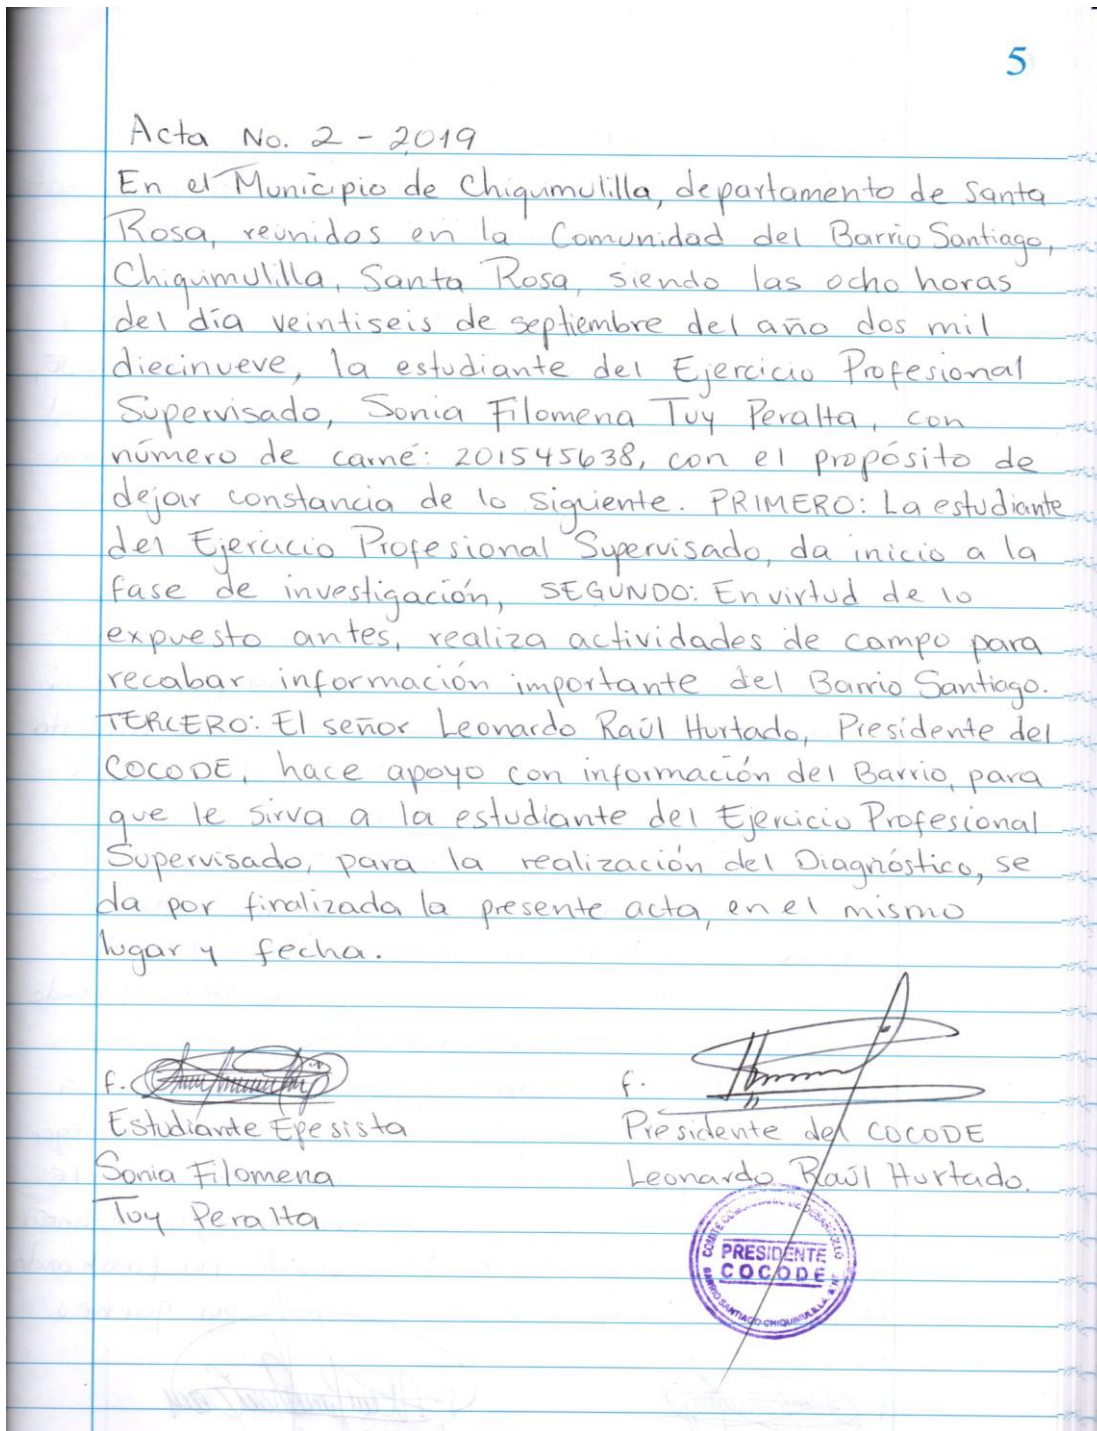 5
Acta No. 2 - 2019
En el Municipio de Chiquimulilla, departamento de Santa
Rosa, reunidos en la Comunidad del Barrio Santiago,
Chiquimulilla, Santa Rosa, siendo las ocho horas
del día veintiseis de septiembre del año dos mil
diecinueve, la estudiante del Ejercicio Profesional
Supervisado, Sonia Filomena Tuy Peralta, con
número de carné: 201545638, con el propósito de
dejar constancia de lo siguiente. PRIMERO: La estudiante
del Ejercicio Profesional Supervisado, da inicio a la
fase de investigación, SEGUNDO: En virtud de lo
expuesto antes, realiza actividades de campo para
recabar información importante del Barrio Santiago.
TERCERO: El señor Leonardo Raúl Hurtado, Presidente del
COCODE, hace apoyo con información del Barrio, para
que le sirva a la estudiante del Ejercicio Profesional
Supervisado, para la realización del Diagnóstico, se
da por finalizada la presente acta, en el mismo
lugar y fecha.
f. f.
Estudiante Epesista Presidente del COCODE
Sonia Filomena Leonardo Raúl Hurtado.
Tuy Peralta
PRESIDENTE
COCODE
BARRIO SANTIAGO CHIQUIMULILLA, S. R.